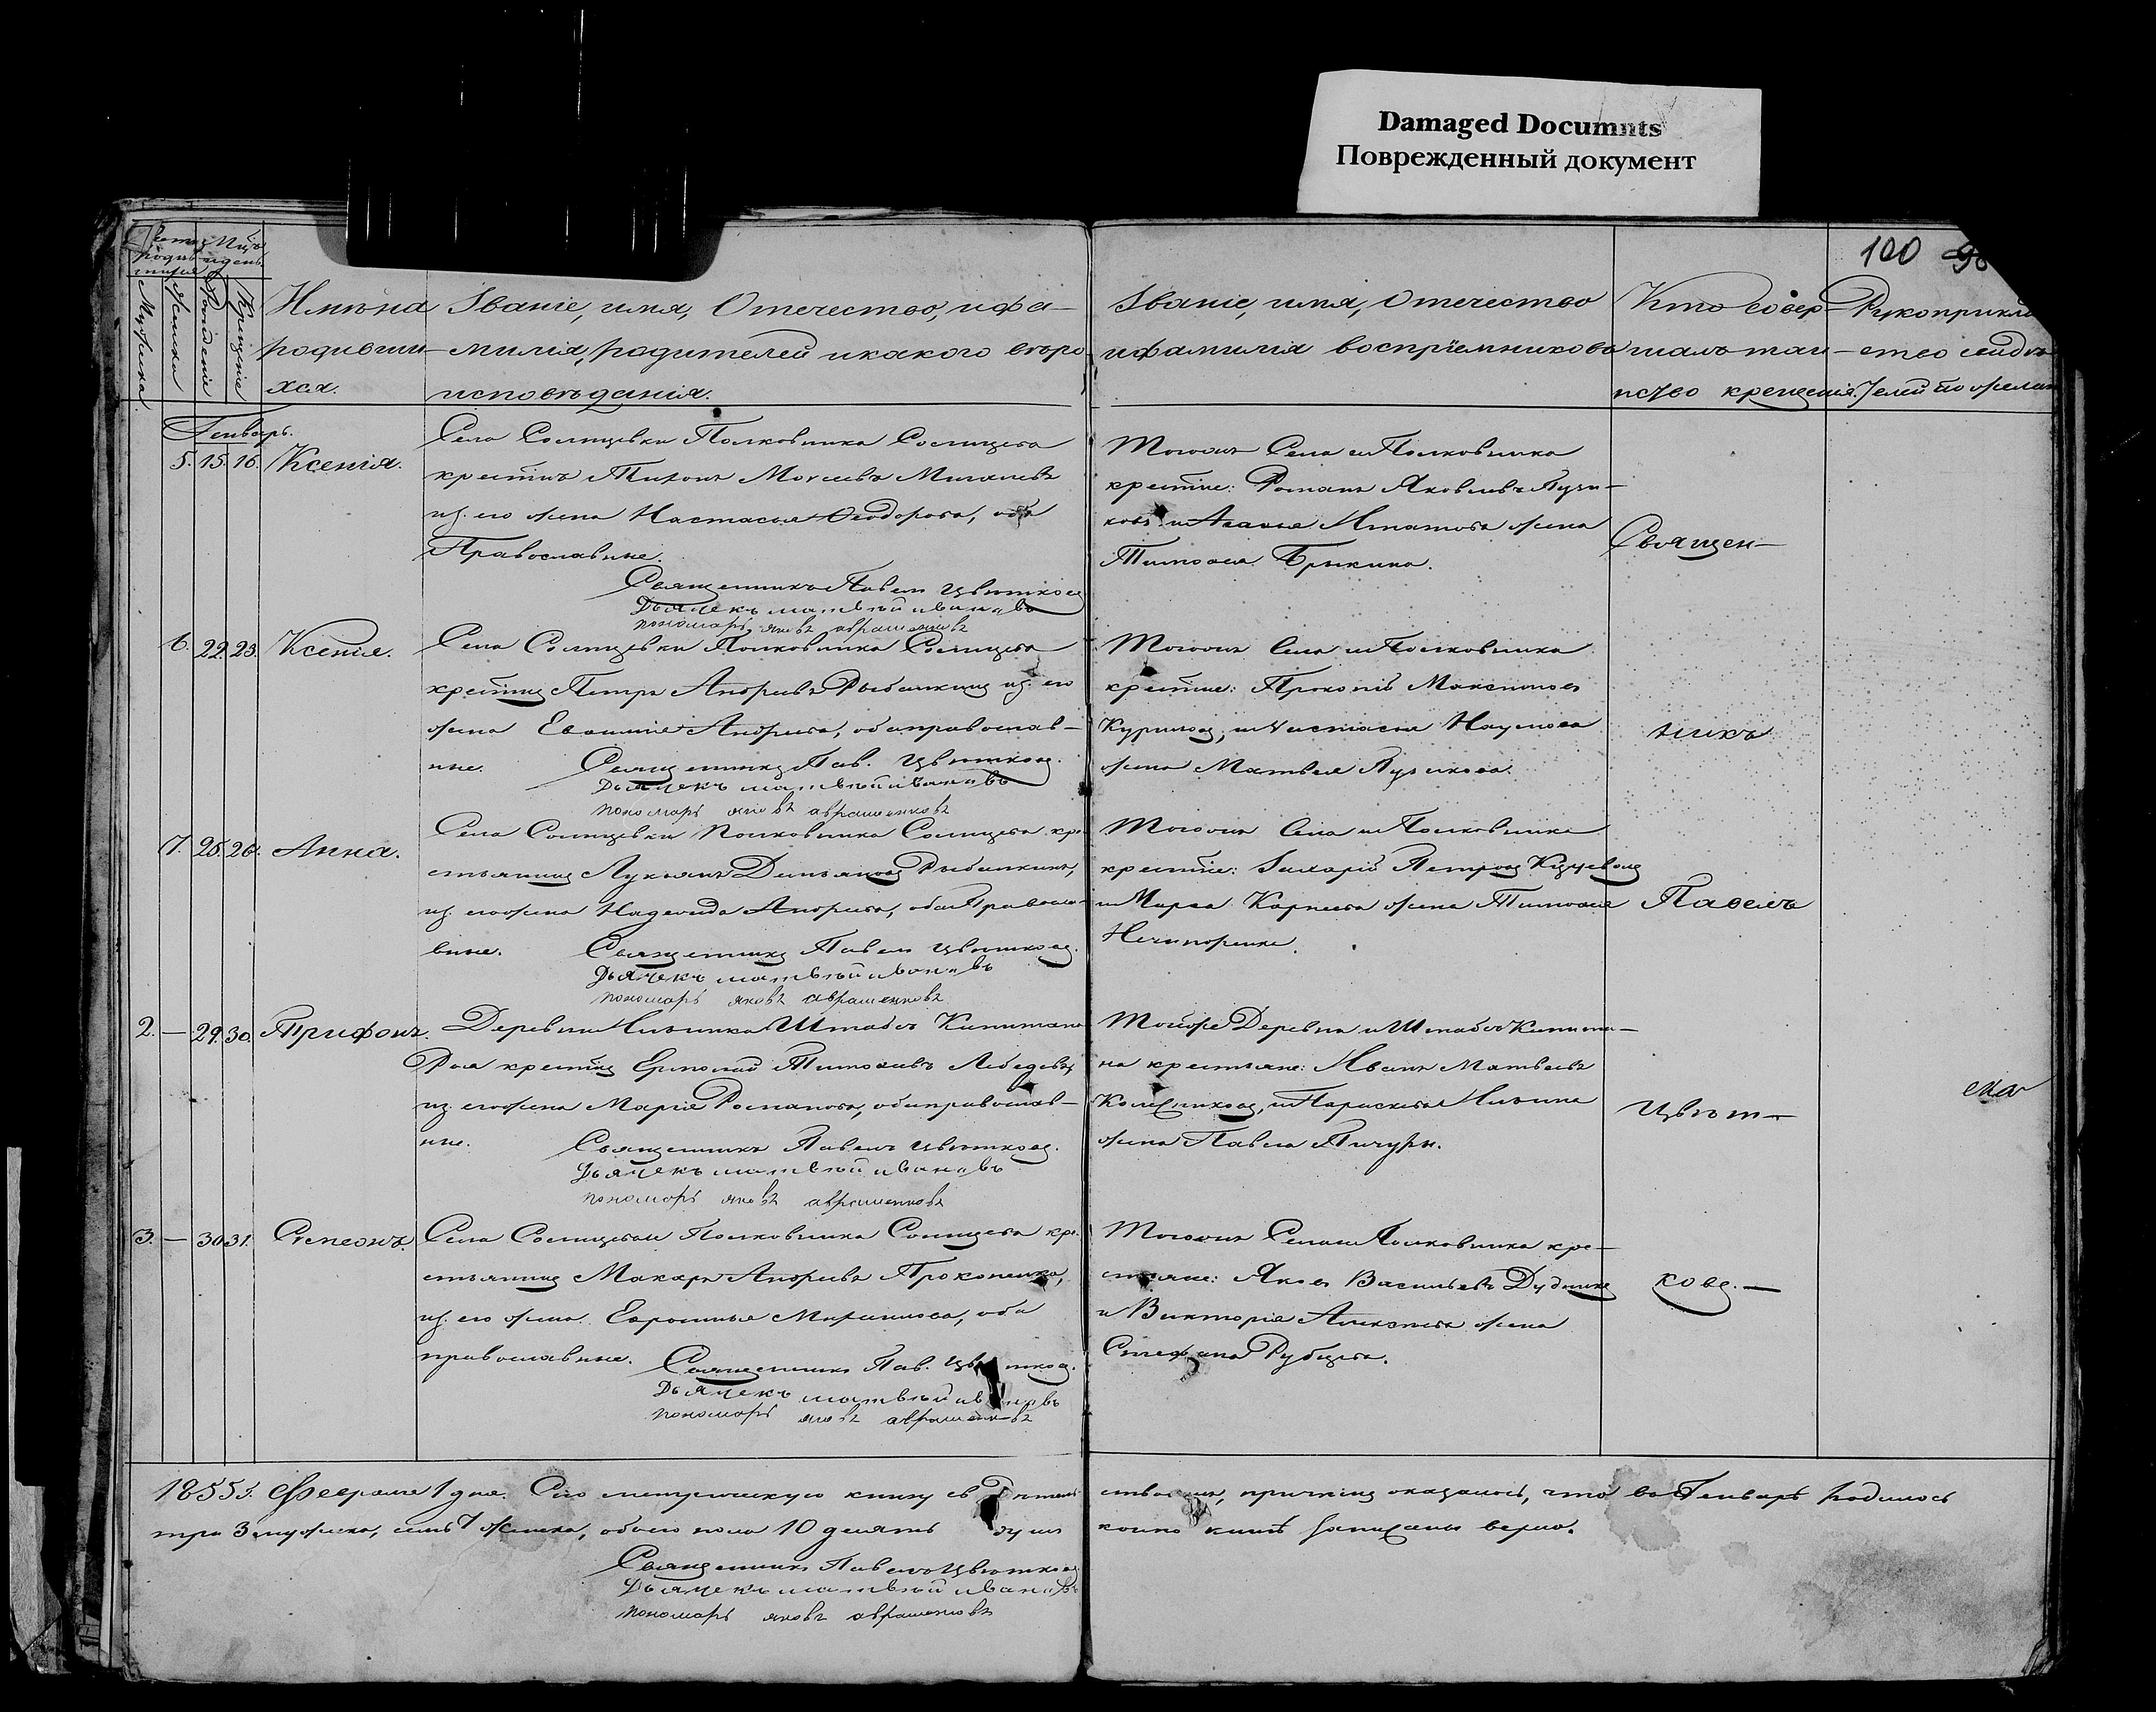 Damaged Documnts
Поврежденный документ
100
Имѣна
родивши-
хся.
Званіе, имя, Отечество, и фа-
милія, родителей и какого вѣро
исповѣданія.
Званіе, имя, Отечество
и фамилія воспріемниковъ
Кто совер-
шалъ таи-
нство крещенія.
Рукоприкла
ство свидѣ
телей по желан
Мужска.
Женски
Рожденіе
Крещеніе
Генварь.
5. 15. 16. Ксенія.
Села Солнцевки Полковника Солнцева
крестнъ Тихонъ Моисеевъ
его жена Настасья Феодорова, оба
Православные.
Священникъ Павелъ Цвѣтковъ
Дьячекъ матвѣй ивановъ
пономарь яковъ авраменковъ
Тогожъ Села и Полковника
крестне: Романъ Яковлевъ Пузи-
ковъ и Агафья Игнатова жена
Тимофея Брыкина.
Священ-
6. 22. 23. Ксенія.
Села Солнцевки Полковника Солнцева
Петръ Андреевъ Рыбалкинъ из. его
жена Евфимія Андреева, оба православ-
ные. Священникъ Пав. Цвѣтковъ.
Дьячекъ матвѣй ивановъ
пономарь яковъ авраменковъ
Тогожъ Села и Полковника
крестне: Прокопій Максимовъ
Куриловъ, и Настасья Наумова
жена Матвея Пузикова.
никъ
7. 25. 26. Анна.
Села Солнцевки Полковника Солнцева кре
стьянинъ Лукьянъ Демьяновъ Рыбалкинъ,
из. его жена Надежда Андреева, оба Правосла-
вные. Священникъ Павелъ Цвѣтковъ.
Дьячекъ матвѣй ивановъ
пономарь яковъ авраменковъ
Тогожъ Села и Полковника
крестне: Захарій Петровъ
и Марфа Карпеева жена Тимофея
Нечипоренка.
Павелъ
2. — 29. 30. Трифонъ.
Деревни Ильинки Штабсъ Капитана
Ермолай Тимофеевъ Лебедевъ,
из. его жена Марія Романова, оба православ-
ные. Священникъ Павелъ Цвѣтковъ.
Дьячекъ матвѣй ивановъ
пономарь яковъ авраменковъ
Тойже Деревни и Штабсъ Капита-
на крестьяне: Иванъ Матвеевъ
Колесниковъ, и Параскева Ильина
жена Павла Пичуры.
Цвѣт-
3. — 30. 31. Симеонъ.
Села Солнцевки Полковника Солнцева кре
стьянинъ Макаръ Андреевъ Прокопенко,
из. его жена оба
православные. Священникъ Пав. Цвѣтковъ.
Дьячекъ матвѣй ивановъ
пономарь яковъ авраменковъ
Тогожъ Села и Полковника кре-
стьяне: Яковъ Васильевъ Дудникъ
и Викторія Алексѣева жена
Стефана Рубцева.
ковъ. —
1855 г. Февраля 1 дня. Сію метрическую книгу
ствовали, причемъ оказалось, что въ Генварѣ родилось
три 3 мужска, семь 7 женска, обоего пола 10 десять душъ
книгѣ записаны верно.
Священникъ Павелъ Цвѣтковъ
Дьячекъ матвѣй ивановъ
пономарь яковъ авраменковъ